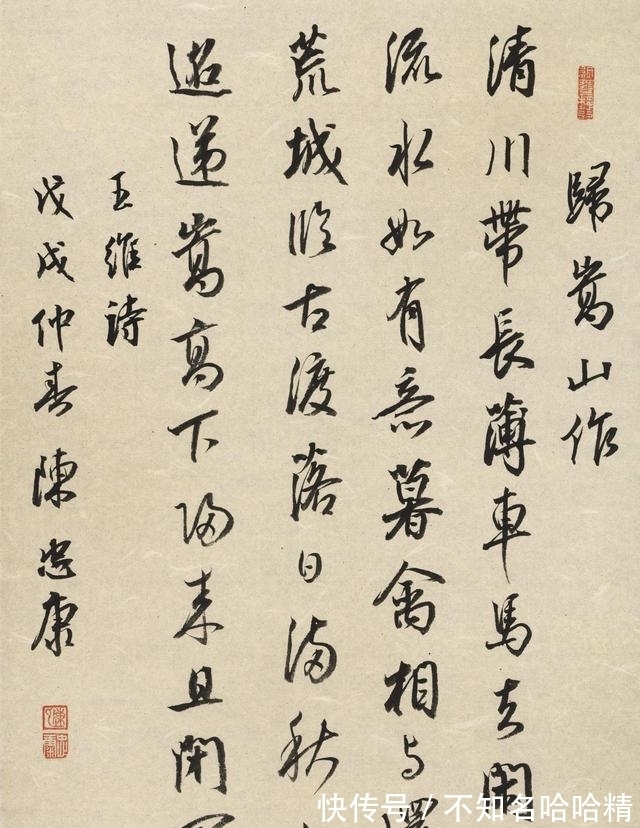 歸嵩山作
清川帶長薄車馬去閑
流水如有意暮禽相与還
荒城临古渡落日满秋
迢递嵩高下归来且閉
王維詩
戊戌仲春陳忠康
快传号/不知名哈哈精